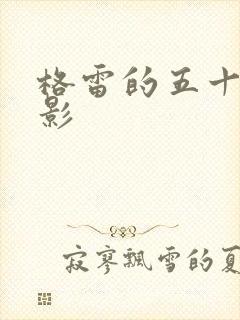 格雷的五十
影
寂寥飘雪的夏